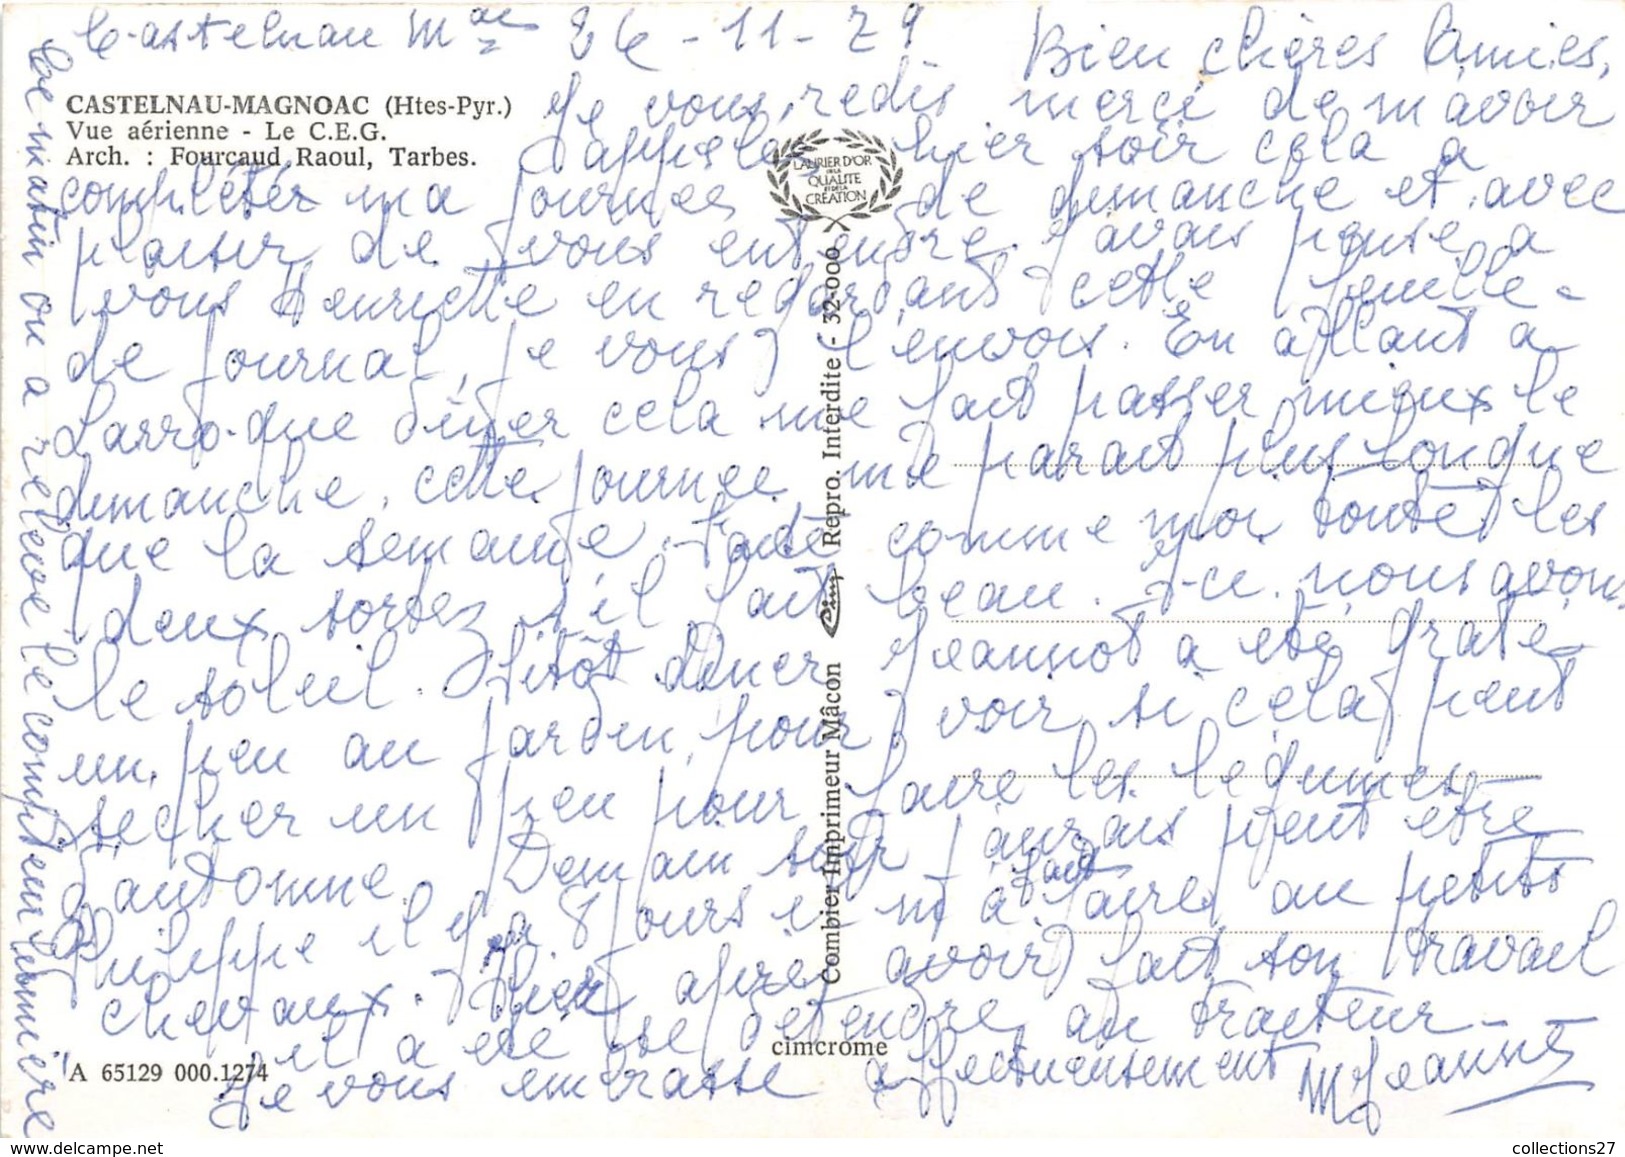 Castelnau Mac 26-11-79 Bien chères Amies,
CASTELNAU-MAGNOAC (Htes-Pyr.)
Vue aérienne - Le C.E.G.
Arch. : Fourcaud Raoul, Tarbes.
Je vous redis merci de m'avoir
appelé hier soir cela a
complétér ma journée de dimanche et avec
plaisir de vous entendre. J'avais pensé a
vous Henriette en regardant cette feuille
de journal, je vous l'envois. En allant a
Larroque diner cela me fait passer mieux le
dimanche, cette journée me parait plus longue
que la semaine. Faite comme moi toutes les
deux sortez s'il fait beau. Ici nous avons
le soleil. Sitôt diner Jeannot a été graté
un peu au jardin, pour voir si cela peut
sécher un peu pour faire les légumes
d'automne. Demain soir j'aurais peut être
Philippe il y a 8 jours il m'a fait faire au petits
chevaux. Hier apres avoir fait son travail
il a été se détendre au tracteur
Je vous embrasse affectueusement M Jeanne
Ce matin on a relevé le compteur lumière
LAURIER D'OR
DE LA
QUALITE
ET DE LA
CREATION
Combier Imprimeur Mâcon Cim Repro. Interdite - 32-000
cimcrome
A 65129 000.1274
collections27